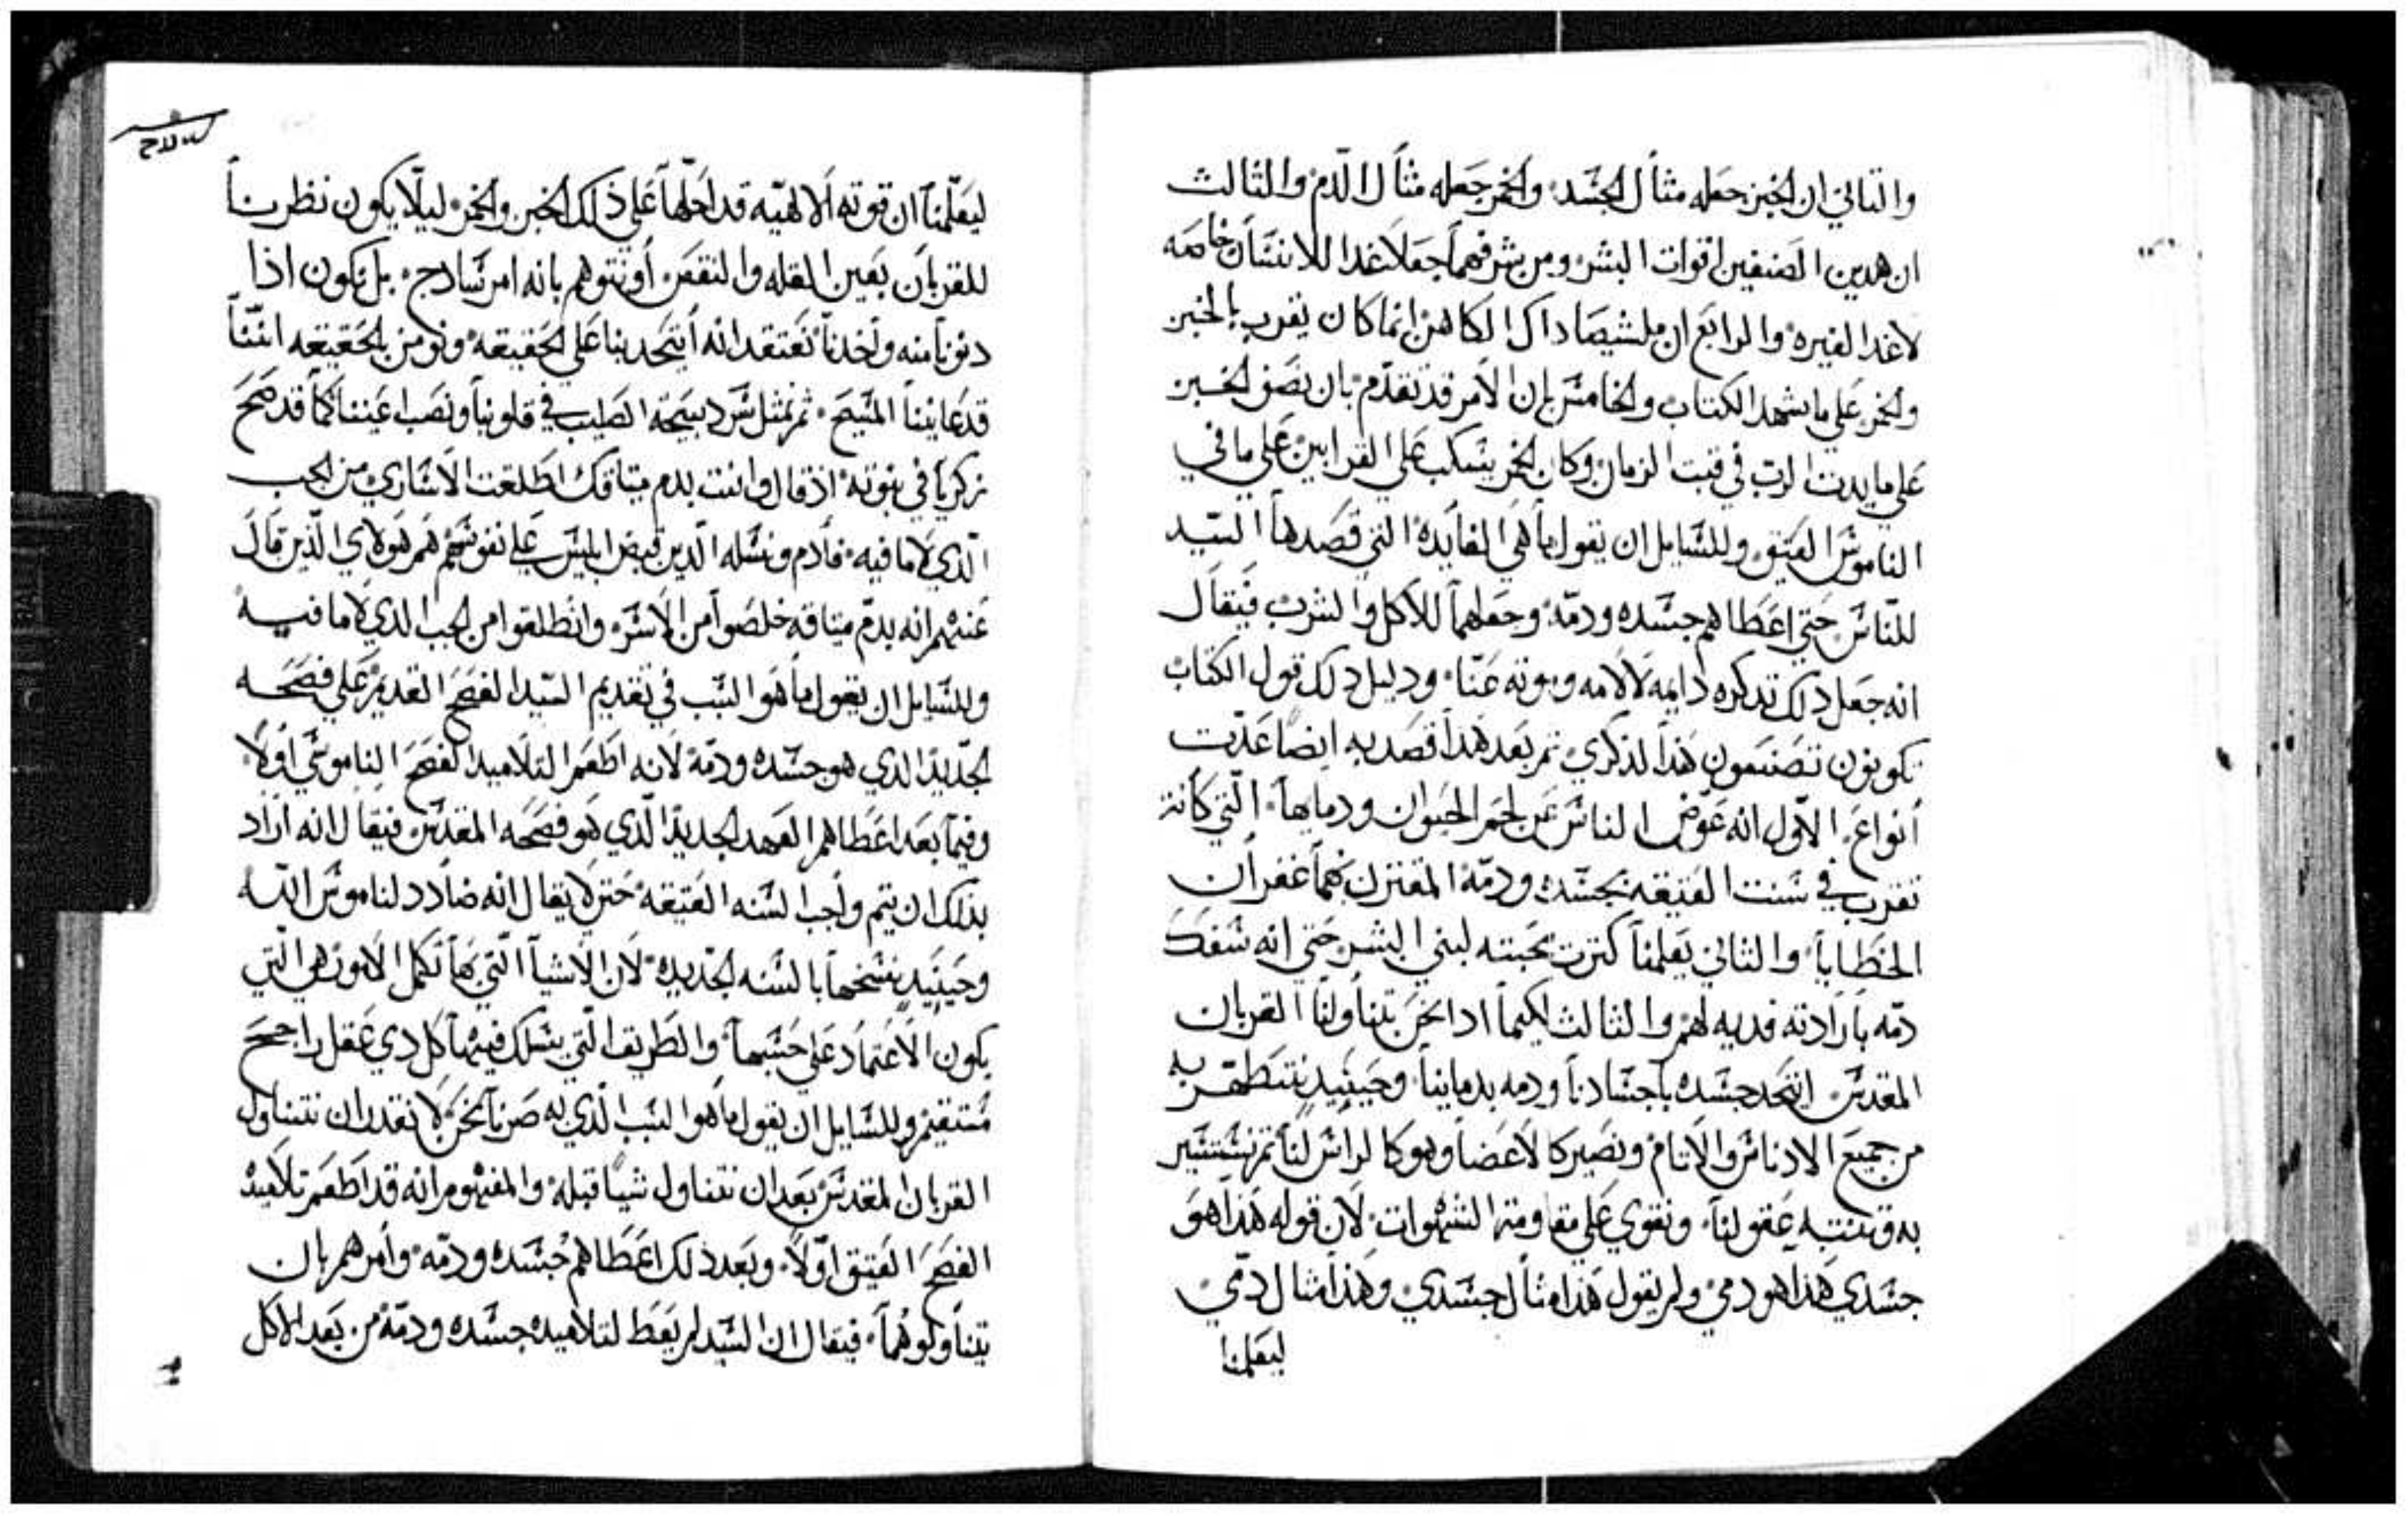 والتاني ان الخبز جعله مثال الجسد والخمر جعله مثال الدم والثالث
ان هدين الصنفين اقوات البشر ومن شرفهما جعلا غدا للانسان خاصه
لا غدا لغيره والرابع ان ملشيصاداك الكاهن انما كان يقرب بالخبز
والخمر على ما يشهد الكتاب والخامس بان الامر قد تقدم بان يصف الخبز
على مايدت الرب في قبت الزمان وكان الخمر يسكب على القرابين على ما في
الناموس العتيق وللسايل ان يقول ما هي الفايده التي قصدها السيد
للناس حتي اعطاهم جسده ودمه وجعلهما للاكل والشرب فيقال
انه جعل دلك تدكره دايمه لالامه وموته عنا ودليل دلك قول الكتاب
تكونون تصنعون هذا لذكري تم بعد هدا قصد به ايضا عدت
أنواع الاول انه عوض الناس عن لحم الحيوان ودمايها التي كانت
تقرب في سنت العتيقه بجسده ودمه المقترن بهما غفران
الخطايا والثاني يعلمنا كترت محبته لبني البشر حتي انه سفك
دمه بارادته فديه لهم والثالث لكيما ادا نحن تناولنا القربان
المقدس اتحد جسده باجسادنا ودمه بدماينا وحينيد نتطهر به
من جميع الادناس والاتام ونصير كالاعضا وهو كالراس لنا تم نستنير
به وتنتبه عقولنا ونقوي على مقاومة الشهوات لان قوله هذا هو
جسدي هذا هو دمي ولم يقول هذا مثال جسدي وهذا مثال دمي
ليعلمنا
ليعلمنا ان قوته الالاهيه قد احلها على ذلك الخبز والخمر ليلا يكون نظرنا
للقربان بعين القله والنقص أو نتوهم بانه امر سادج بل نكون اذا
دنونا منه واخدنا نعتقد انه أيتحد بنا على الحقيقه ونومن بالحقيقه اننا
قد عاينا المسيح ثم نمثل شر دبيحة الصليب في قلوبنا ونصب اعيننا كما قد صحح
زكريا في نبوته اذ قال وانت بدم ميتاقك اطلقت الاساري من الجب
الذي لا ما فيه فادم ونسله الدين قبض ابليس على نفوسهم هم هولاي الذين قال
عنهم انه بدم ميتاقه خلصوا من الاسر وانطلقوا من الجب الذي لا ما فيه
وللسايل ان يقول ما هو السبب في تقديم السيد الفصح القديم على فصحه
الجديد الذي هو جسده ودمه لانه اطعم التلاميد الفصح الناموسي اولا
وفيما بعد اعطاهم العهد الجديد الذي هو فصحه المقدس فيقال انه اراد
بذلك ان يتم واجب السنه العتيقه حتي لا يقال انه ضادد لناموس الله
وحينيد نسخها بالسنه الجديده لان الاشيا التي بها تكمل الامور هي التي
يكون الاعتماد على حسبها والطريق التي يسلك فيها كل دي عقل راجح
مستقيم وللسايل ان يقول ما هو السبب الذي به صرنا نحن لا نقدر ان نتناول
القربان المقدس بعد ان نتناول شيا قبله والمفهوم انه قد اطعم تلاميده
الفصح العتيق اولا وبعد ذلك اعطاهم جسده ودمه وأمرهم بان
يتناولوهما فيقال ان السيد لم يعط لتلاميده جسده ودمه من بعد الاكل